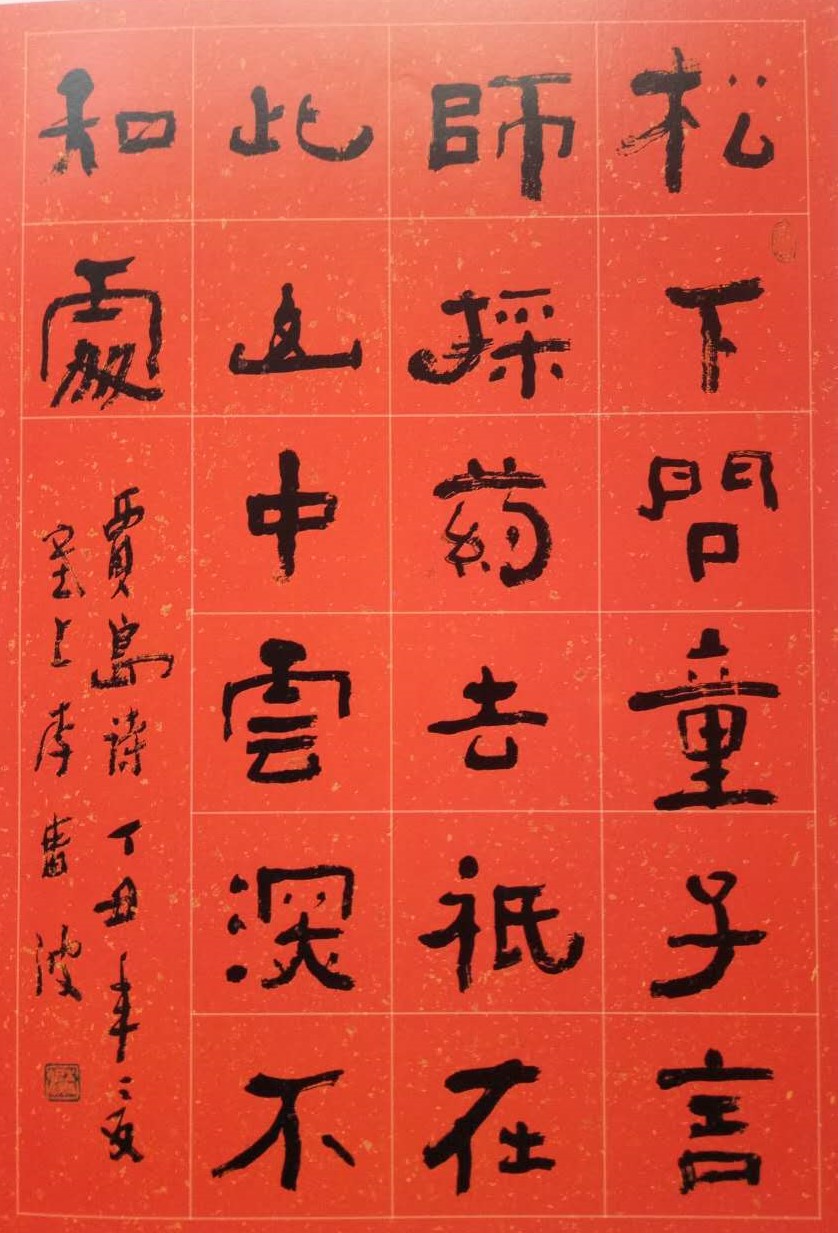 松下問童子言
師採葯去祇在
此山中雲深不
知處
賈島詩 丁丑年之夏
塞上李
波